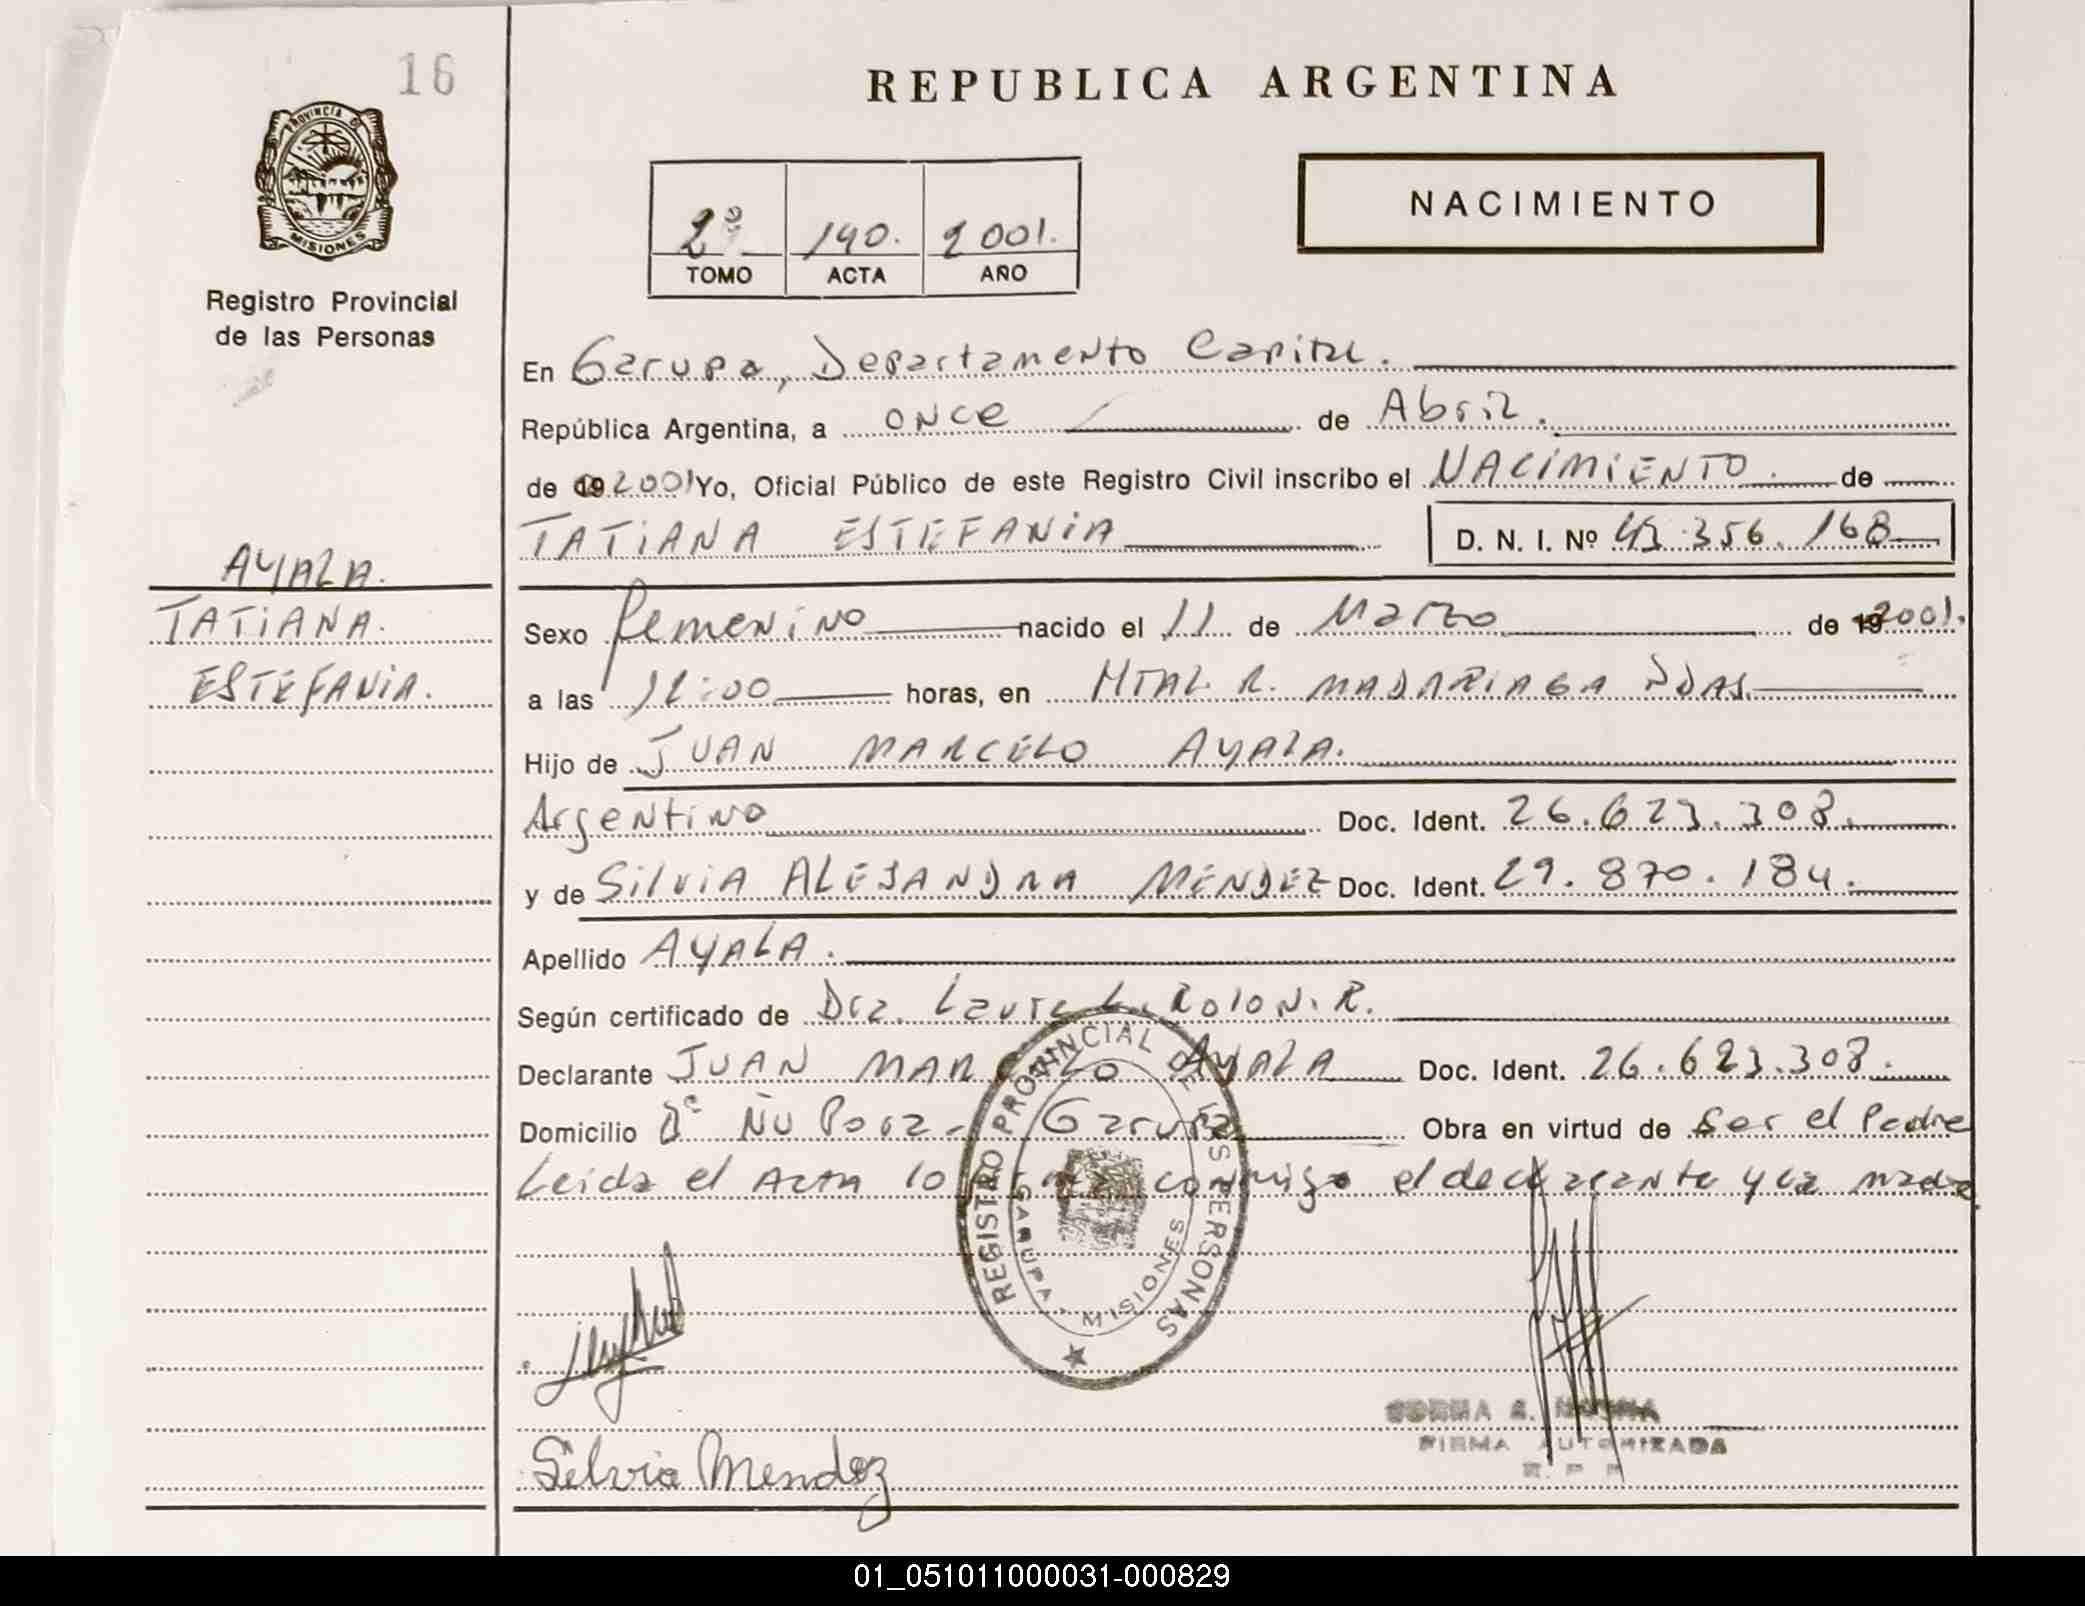 16
REPUBLICA ARGENTINA
PROVINCIA DE
MISIONES
Registro Provincial
de las Personas
2º 190. 2001.
TOMO ACTA AÑO
NACIMIENTO
En Garupa, Departamento Capital.
República Argentina, a once de Abril.
de 19 2001 Yo, Oficial Público de este Registro Civil inscribo el NACIMIENTO. de
TATIANA ESTEFANIA D. N. I. Nº 43.356.168
AYALA.
TATIANA.
ESTEFANIA.
Sexo femenino nacido el 11 de Marzo de 19 2001.
a las 12:00 horas, en HTAL R. MADARIAGA PDAS.
Hijo de JUAN MARCELO AYALA.
Argentino Doc. Ident. 26.623.308.
y de SILVIA ALEJANDRA MENDEZ Doc. Ident. 29.870.184.
Apellido AYALA.
Según certificado de Dra. Laura L. Rolon. R.
Declarante JUAN MARCELO AYALA Doc. Ident. 26.623.308.
Domicilio Bº Ñu Pora - Garupa Obra en virtud de ser el Padre
Leida el Acta lo firma conmigo el declarante y la madre.
REGISTRO PROVINCIAL DE LAS PERSONAS
GARUPA - MISIONES
Silvia Mendez
FIRMA AUTORIZADA
R. P. P.
01_051011000031-000829